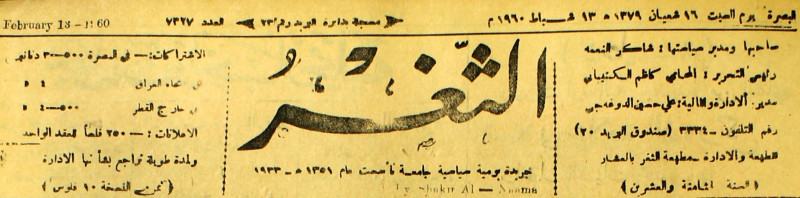 البصرة يوم السبت ١٦ شعبان ١٣٧٩ ه ١٣ شباط ١٩٦٠ م
مسجلة بدائرة البريد رقم ٢٣
العدد ٧٣٢٧
February 13 - 1960
صاحبها ومدير سياستها : شاكر النعمه
رئيس التحرير : المحامي كاظم
مدير الادارة والمالية : علي حسين
رقم التلفون – ٣٣٣٤ (صندوق البريد ٢٠)
المطبعة والادارة – مطبعة الثغر بالعشار
( السنة الثامنة والعشرين )
الثَّغْرُ
جريدة يومية سياسية جامعة تأسست عام ١٣٥١ ه – ١٩٣٣
by Shakir Al – Naama
الاشتراكات :— في البصرة ٣٠٠—٥ دنانير
في انحاء العراق ٤ »
في خارج القطر ٥٠٠—٤ »
الاعلانات :— ٢٥٠ فلساً للعقد الواحد
ولمدة طويلة تراجع بشأنها الادارة
( ثمن النسخة ١٠ فلوس )